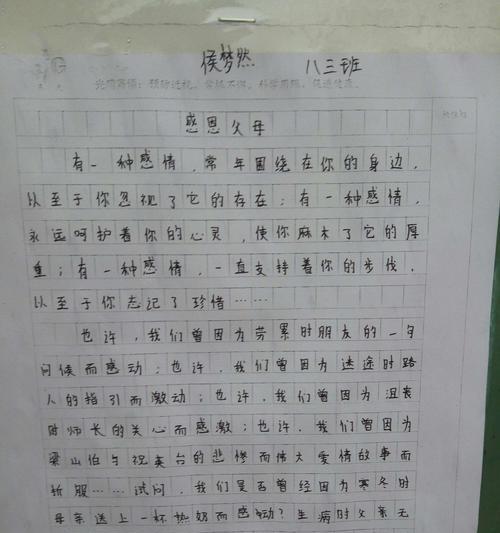 侯梦然 八三班
光明寄语：预防近视，常抓不懈，科学用眼，促进健康。
感恩父母
有一种感情，常年围绕在你的身边，
以至于你忽视了它的存在；有一种感情，
永远呵护着你的心灵，使你麻木了它的厚
重；有一种感情，一直支持着你的步伐，
以至于你忘记了珍惜……
也许，我们曾因为劳累时朋友的一句
问候而感动；也许，我们曾因为迷途时路
人的指引而激动；也许，我们曾因为沮丧
时师长的关心而感激；也许，我们曾因为
梁山伯与祝英台的悲惨而伟大爱情故事而
折服……试问，我们是否曾经因为寒冬时
母亲送上一杯热奶而感动？生病时父亲无